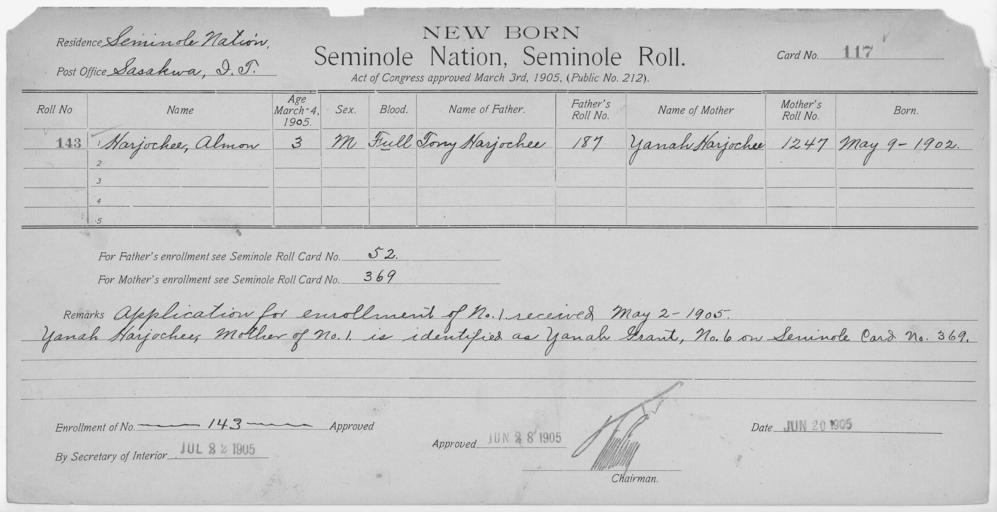 NEW BORN
Residence Seminole Nation,
Seminole Nation, Seminole Roll.
Card No. 117
Post Office Sasakwa, I. T.
Act of Congress approved March 3rd, 1905, (Public No. 212).
Roll No Name Age March 4, 1905. Sex. Blood. Name of Father. Father's Roll No. Name of Mother Mother's Roll No. Born.
143 1 Harjochee, Almon 3 M Full Tony Harjochee 187 Yanah Harjochee 1247 May 9-1902.
2
3
4
5
For Father's enrollment see Seminole Roll Card No. 52.
For Mother's enrollment see Seminole Roll Card No. 369
Remarks Application for enrollment of No. 1 received May 2-1905.
Yanah Harjochee, Mother of No. 1. is identified as Yanah Grant, No. 6 on Seminole Card No. 369.
Enrollment of No. 143 Approved
By Secretary of Interior JUL 22 1905
Approved JUN 28 1905
Chairman.
Date JUN 20 1905